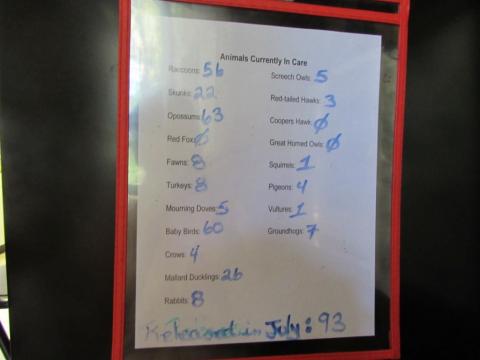 Animals Currently In Care
Raccoons: 56
Skunks: 22
Opossums: 63
Red Fox: Ø
Fawns: 8
Turkeys: 8
Mourning Doves: 5
Baby Birds: 60
Crows: 4
Mallard Ducklings: 26
Rabbits: 8
Screech Owls: 5
Red-tailed Hawks: 3
Coopers Hawk: Ø
Great Horned Owls: Ø
Squirrels: 1
Pigeons: 4
Vultures: 1
Groundhogs: 7
Released in July: 93